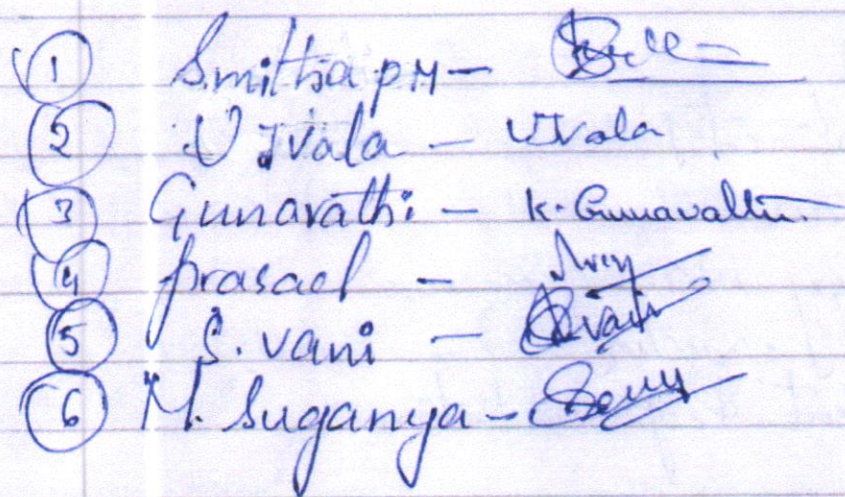 1 Smitha PM -
2 Ujvala - Ujvala
3 Gunavathi - K. Gunavathi.
4 Prasad -
5 S. Vani -
6 M. Suganya -